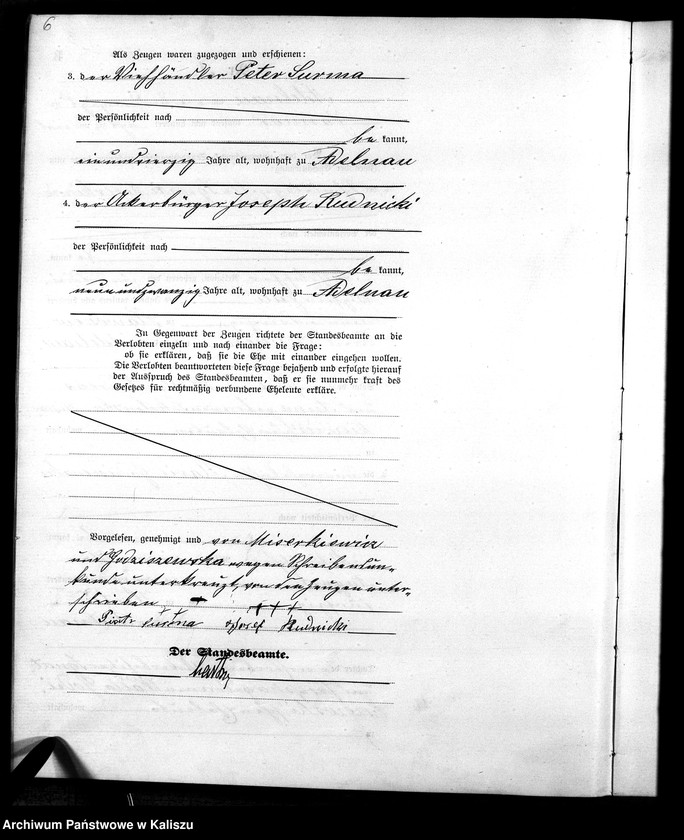 6
Als Zeugen waren zugezogen und erschienen:
3. der Viehhändler Peter Surma
der Persönlichkeit nach
be kannt,
einundvierzig Jahre alt, wohnhaft zu Adelnau
4. der Ackerbürger Joseph Rudnicki
der Persönlichkeit nach
be kannt,
neunundzwanzig Jahre alt, wohnhaft zu Adelnau
In Gegenwart der Zeugen richtete der Standesbeamte an die
Verlobten einzeln und nach einander die Frage:
ob sie erklären, daß sie die Ehe mit einander eingehen wollen.
Die Verlobten beantworteten diese Frage bejahend und erfolgte hierauf
der Ausspruch des Standesbeamten, daß er sie nunmehr kraft des
Gesetzes für rechtmäßig verbundene Eheleute erkläre.
Vorgelesen, genehmigt und von Miserkiewicz
und Godziszewska wegen Schreibensun-
kunde unterkreuzt, von den Zeugen unter-
schrieben
+++
Piotr Surma Josef Rudnicki
Der Standesbeamte.
Archiwum Państwowe w Kaliszu